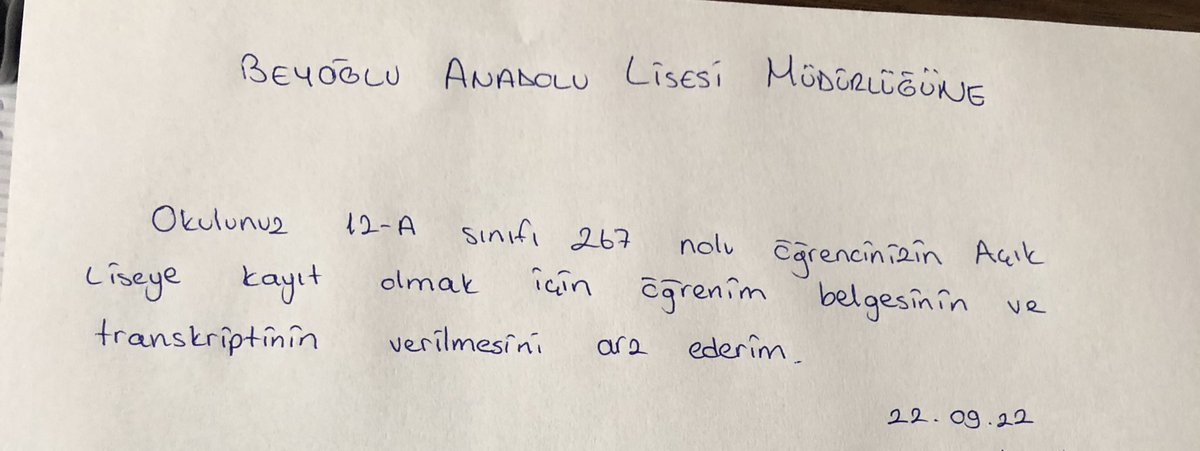 BEYOĞLU ANADOLU LİSESİ MÜDÜRLÜĞÜNE
Okulunuz 12-A sınıfı 267 nolu öğrencinizin Açık
Liseye kayıt olmak için öğrenim belgesinin ve
transkriptinin verilmesini arz ederim.
22.09.22